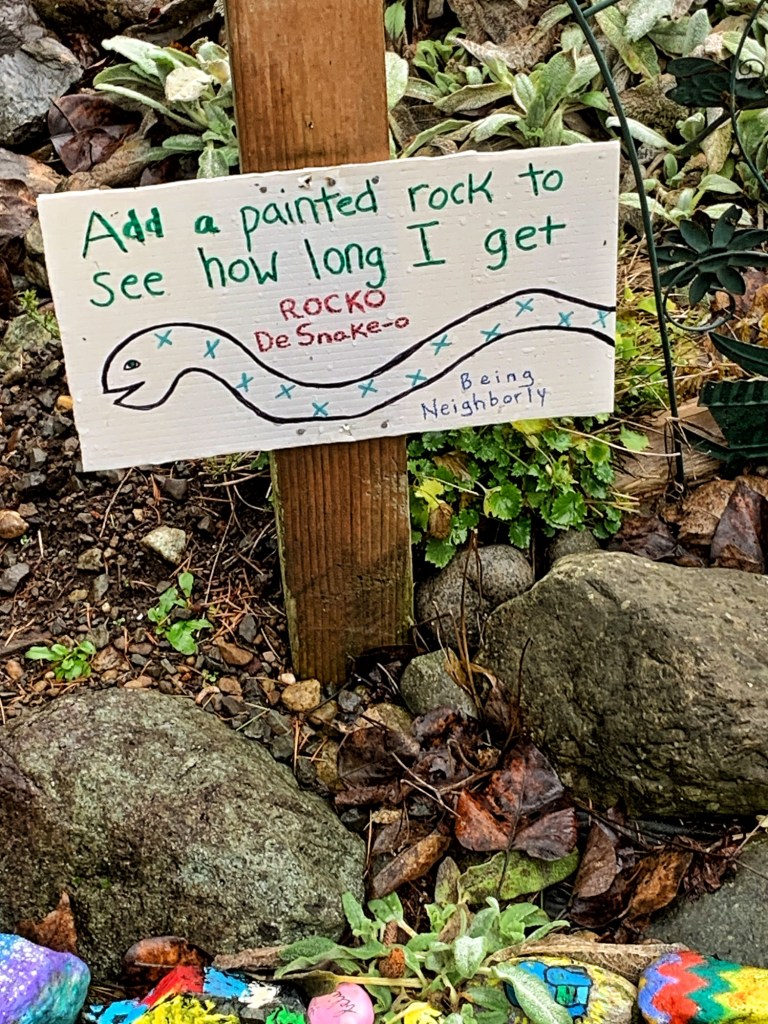 Add a painted rock to
see how long I get
ROCKO
De Snake-o
Being
Neighborly